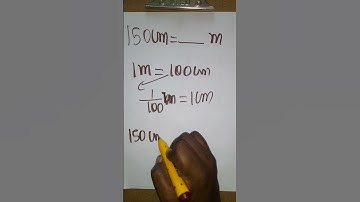 150cm=___ m
1m=100cm
1/100 m=1cm
150cm